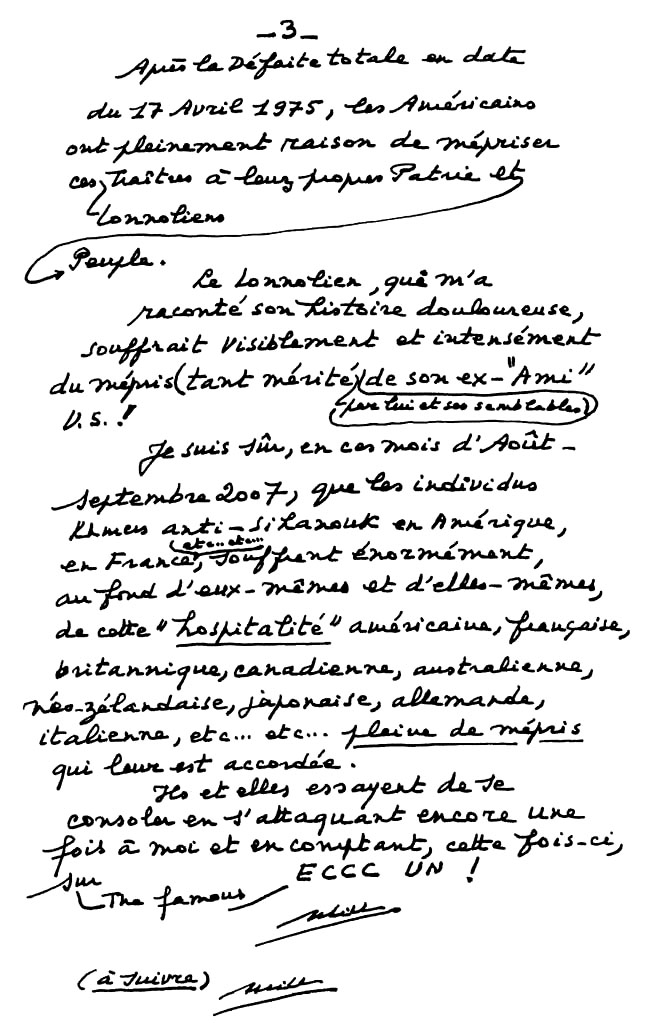 -3-
Après la Défaite totale en date
du 17 Avril 1975, les Américains
ont pleinement raison de mépriser
ces Traîtres à leurs propres Patrie et
Lonnoliens
Peuple.
Le Lonnolien, qui m'a
raconté son histoire douloureuse,
souffrait visiblement et intensément
du mépris (tant mérité) de son ex-"Ami"
(par lui et ses semblables)
U.S. !
Je suis sûr, en ces mois d'Août -
Septembre 2007, que les individus
Khmers anti-Sihanouk en Amérique,
etc... etc...
en France, souffrent énormément,
au fond d'eux-mêmes et d'elles-mêmes,
de cette "hospitalité" américaine, française,
britannique, canadienne, australienne,
néo-zélandaise, japonaise, allemande,
italienne, etc... etc... pleine de mépris
qui leur est accordée.
Ils et elles essayent de se
consoler en s'attaquant encore une
fois à moi et en comptant, cette fois-ci,
sur ECCC UN !
The famous
(à suivre)